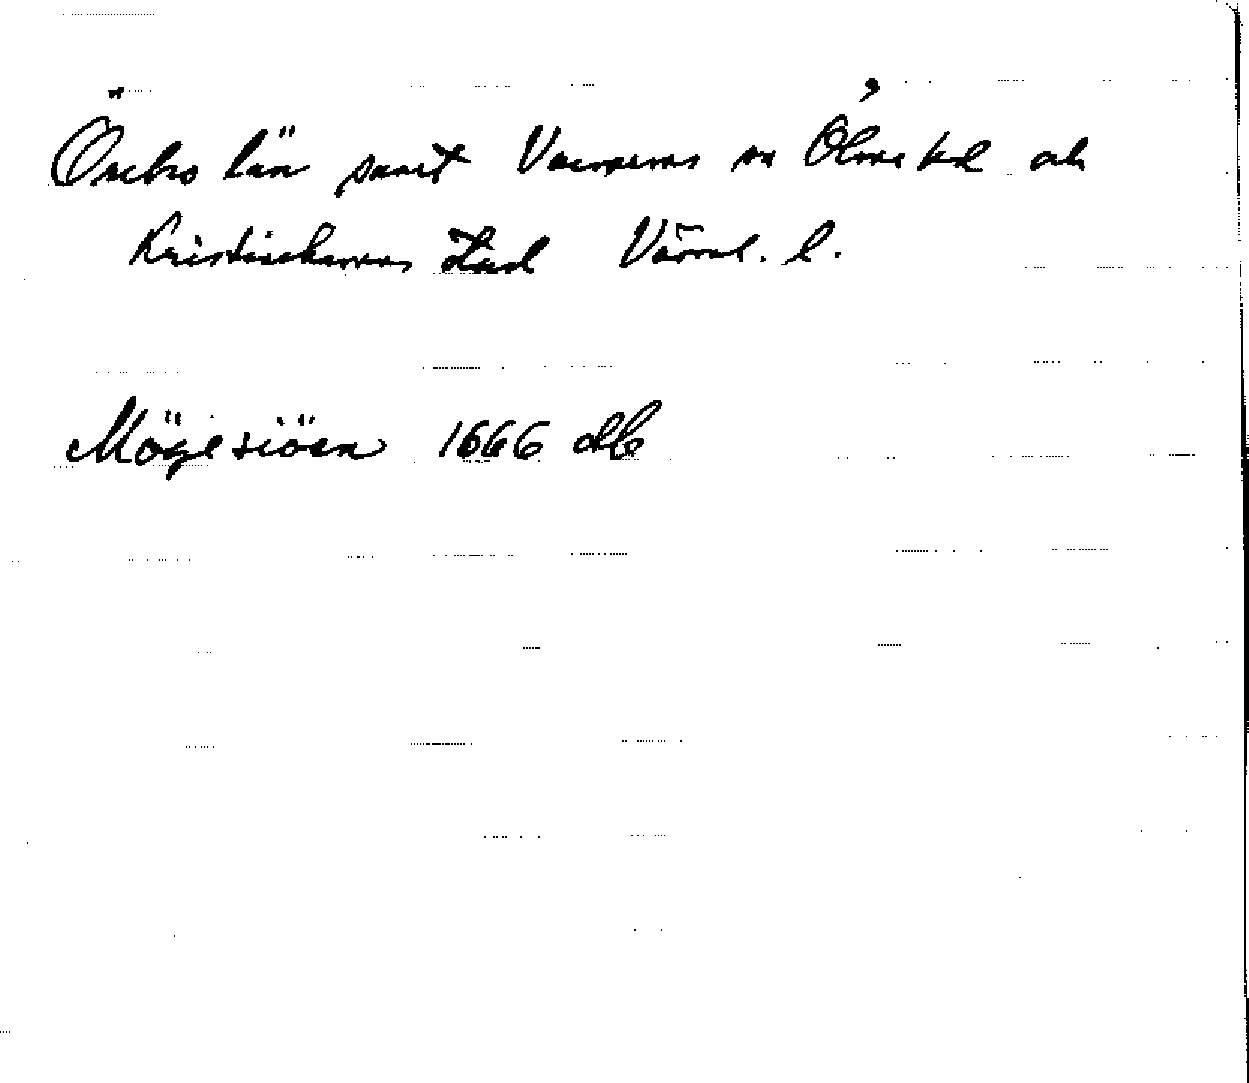 Örebro län samt Varnums sn Ölme hd och
Kristinehamns stad Värml. l.
Mögesiöen 1666 db